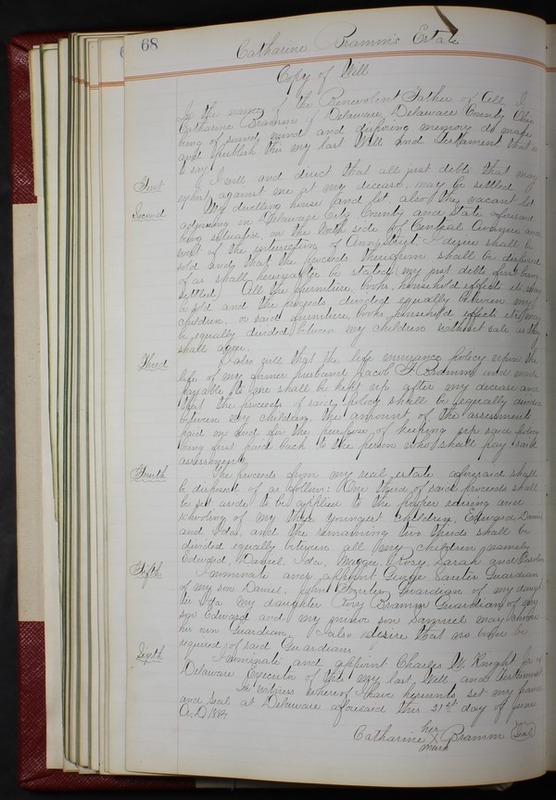 68
Catharine Bramm's Estate
Copy of Will
In the name of the Benevolent Father of All, I
Catharine Bramm of Delaware, Delaware County Ohio
being of sound mind and disposing memory do make
and publish this my last Will and Testament that is
to say
First I will and direct that all just debts that may
exist against me at my decease, may be settled
Second My dwelling house and lot also the vacant lot
adjoining in Delaware City County and State aforesaid
being situate on the North side of Central Avenue and
west of the intersection of Street I desire shall be
sold and that the proceeds therefrom shall be disposed
of as shall hereafter be stated (my just debts first being
settled) All the furniture, books, household effects etc may
be sold and the proceeds divided equally between my
children, or said furniture, books, household effects etc may
be equally divided between my children without sale as they
shall agree.
Third I also will that the life insurance policy upon the
life of my former husband Jacob F Bramm and made
payable to me shall be kept up after my decease and
that the proceeds of said policy shall be equally divided
between my children, the amount of the assessments
paid on and for the purpose of keeping up said policy
being first paid back to the person who shall pay said
assessments
Fourth The proceeds from my real estate aforesaid shall
be disposed of as follows: One third of said proceeds shall
be set aside to be applied to the proper raising and
schooling of my three youngest children, Edward, Daniel
and Ida, and the remaining two thirds shall be
divided equally between all my children namely
Edward, Daniel, Ida, Maggie, Rosy, Sarah and
Fifth I nominate and appoint George Guardian
of my son Daniel, John Guardian of my daugh
ter Ida my daughter Rosy Bramm Guardian of my
son Edward and my minor son Samuel may choose
his own Guardian. I also desire that no bonds be
required of said Guardians
Sixth I nominate and appoint Charles W. Knight of
Delaware Executor of this my last Will and Testament
In witness whereof I have hereunto set my name
and seal at Delaware aforesaid this 21st day of June
A.D.
Catharine her x mark Bramm (Seal)